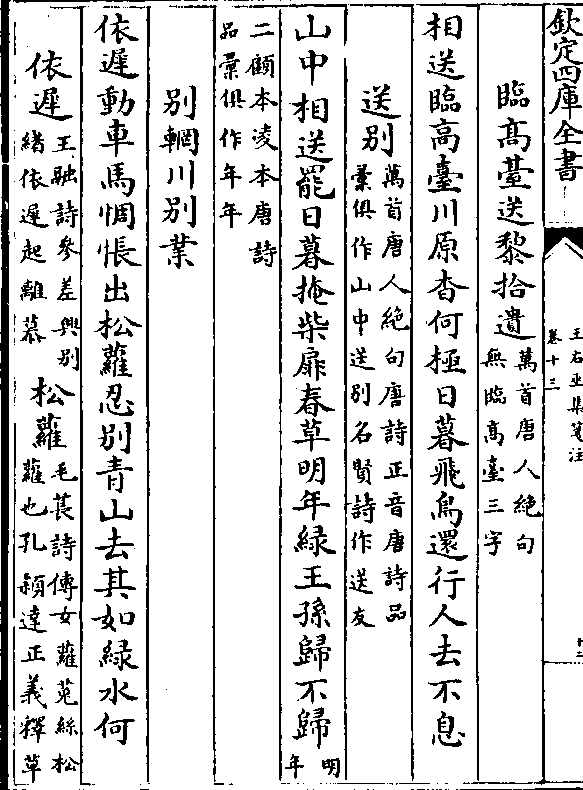 欽定四庫全書
王右丞集箋注
卷十三
臨髙臺送黎拾遺萬首唐人絶句
無臨髙臺三字
相送臨高臺川原杳何極日暮飛鳥還行人去不息
送别萬首唐人絶句唐詩正音唐詩品
彚俱作山中送别名賢詩作送友
山中相送罷日暮掩柴扉春草明年緑王孫歸不歸明
年
二顧本凌本唐詩
品彚俱作年年
别輞川别業
依遲動車馬惆悵出松蘿忍别青山去其如緑水何
依遲王融詩參差興别
緒依遲起離慕
松蘿毛萇詩傳女蘿莵絲松
蘿也孔頴達正義釋草